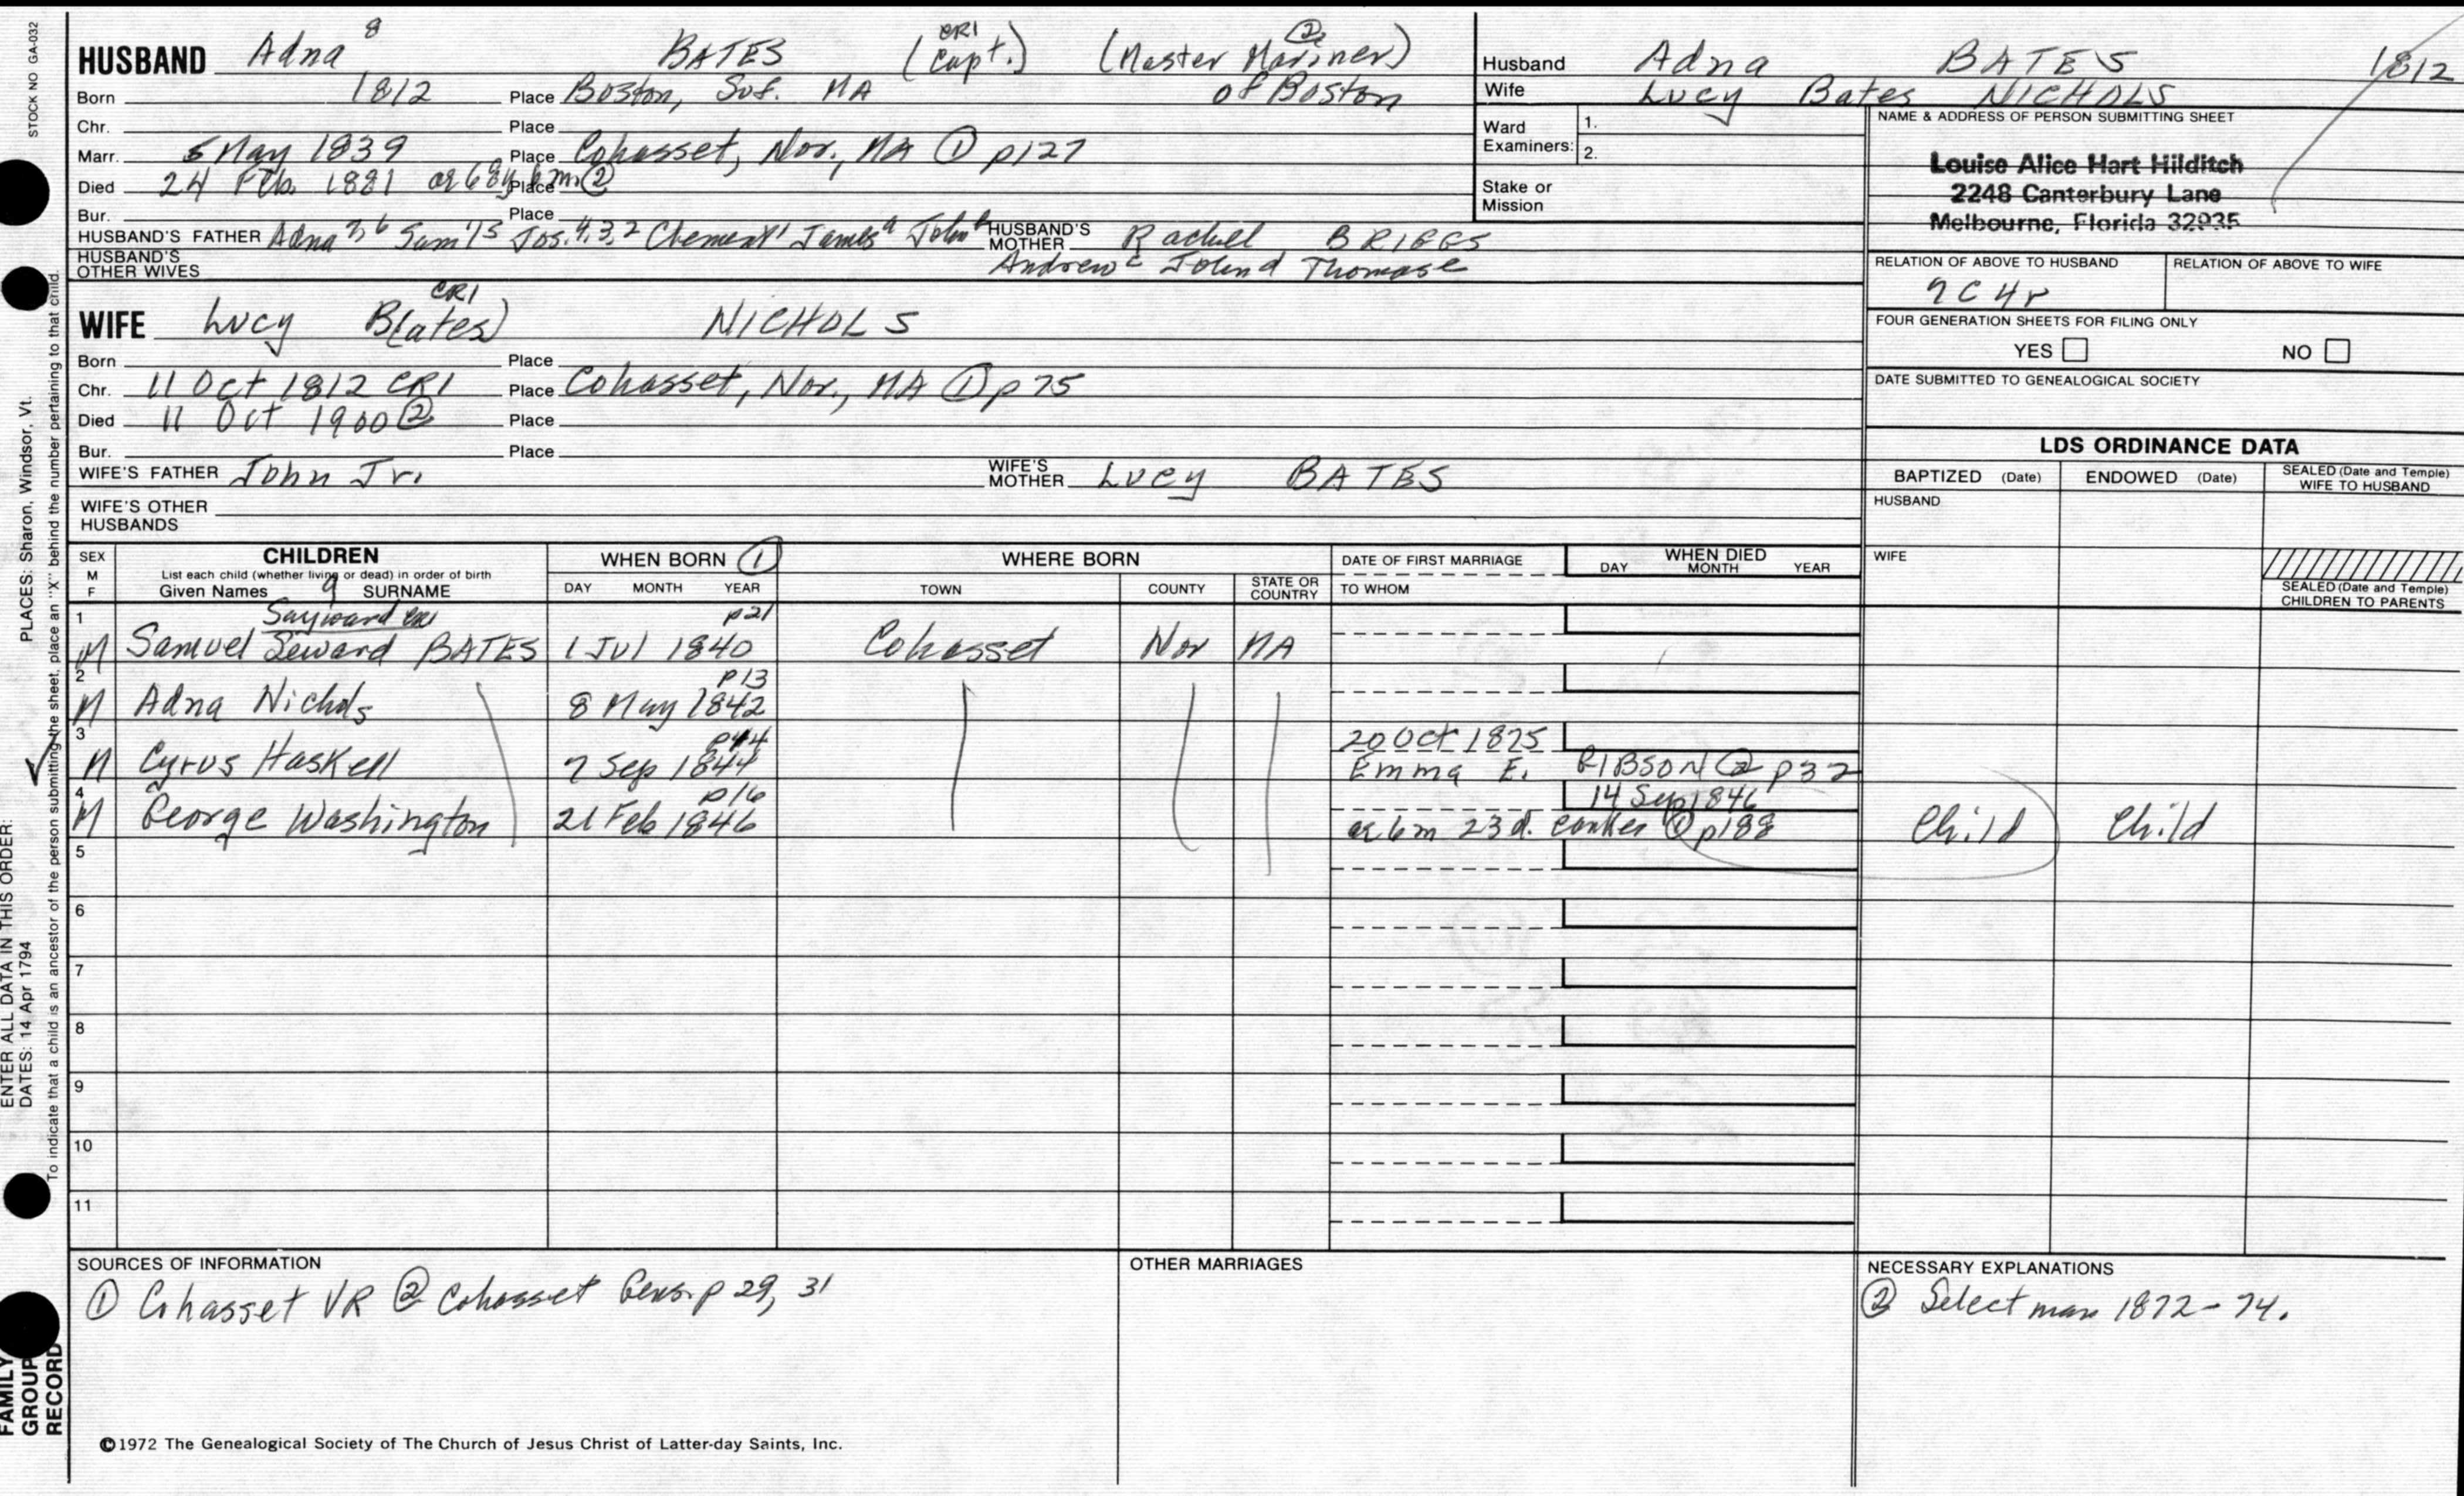 STOCK NO GA-032
HUSBAND Adna 8 BATES (Capt.) CR1 (Master Mariner) ②
Born 1812 Place Boston, Suf. MA of Boston
Chr. Place
Marr. 5 May 1839 Place Cohasset, Nor., MA ① p127
Died 24 Feb. 1881 ae 68y 6m ② Place
Bur. Place
HUSBAND'S FATHER Adna 7,6 Sam'l 5 Jos. 4,3,2 Clement 1 James a John b HUSBAND'S MOTHER Rachel BRIGGS
HUSBAND'S OTHER WIVES Andrew c John d Thomas e
Husband Adna BATES 1812
Wife Lucy Bates NICHOLS
Ward Examiners: 1.
2.
Stake or Mission
NAME & ADDRESS OF PERSON SUBMITTING SHEET
Louise Alice Hart Hilditch
2248 Canterbury Lane
Melbourne, Florida 32935
RELATION OF ABOVE TO HUSBAND RELATION OF ABOVE TO WIFE
7C4r
FOUR GENERATION SHEETS FOR FILING ONLY
YES NO
DATE SUBMITTED TO GENEALOGICAL SOCIETY
WIFE Lucy B(ates) CR1 NICHOLS
Born Place
Chr. 11 Oct 1812 CR1 Place Cohasset, Nor., MA ① p75
Died 11 Oct 1900 ② Place
Bur. Place
WIFE'S FATHER John Jr. WIFE'S MOTHER Lucy BATES
WIFE'S OTHER HUSBANDS
LDS ORDINANCE DATA
BAPTIZED (Date) ENDOWED (Date) SEALED (Date and Temple) WIFE TO HUSBAND
HUSBAND
WIFE
SEALED (Date and Temple) CHILDREN TO PARENTS
SEX M F CHILDREN WHEN BORN ① WHERE BORN DATE OF FIRST MARRIAGE WHEN DIED
List each child (whether living or dead) in order of birth DAY MONTH YEAR
Given Names 9 SURNAME DAY MONTH YEAR TOWN COUNTY STATE OR COUNTRY TO WHOM
1 Sayward p21
M Samuel Seward BATES 1 Jul 1840 Cohasset Nor MA
2 p13
M Adna Nichols 8 May 1842
3 p44 20 Oct 1875
M Cyrus Haskell 7 Sep 1844 Emma E. GIBSON ② p32
4 p16 14 Sep 1846
M George Washington 21 Feb 1846 ae 6m 23d. canker ① p188 Child Child
5
6
7
8
9
10
11
SOURCES OF INFORMATION
① Cohasset VR ② Cohasset Gens. p 29, 31
OTHER MARRIAGES
NECESSARY EXPLANATIONS
② Selectman 1872-74.
©1972 The Genealogical Society of The Church of Jesus Christ of Latter-day Saints, Inc.
FAMILY GROUP RECORD
ENTER ALL DATA IN THIS ORDER:
DATES: 14 Apr 1794 PLACES: Sharon, Windsor, Vt.
To indicate that a child is an ancestor of the person submitting the sheet, place an "X" behind the number pertaining to that child.